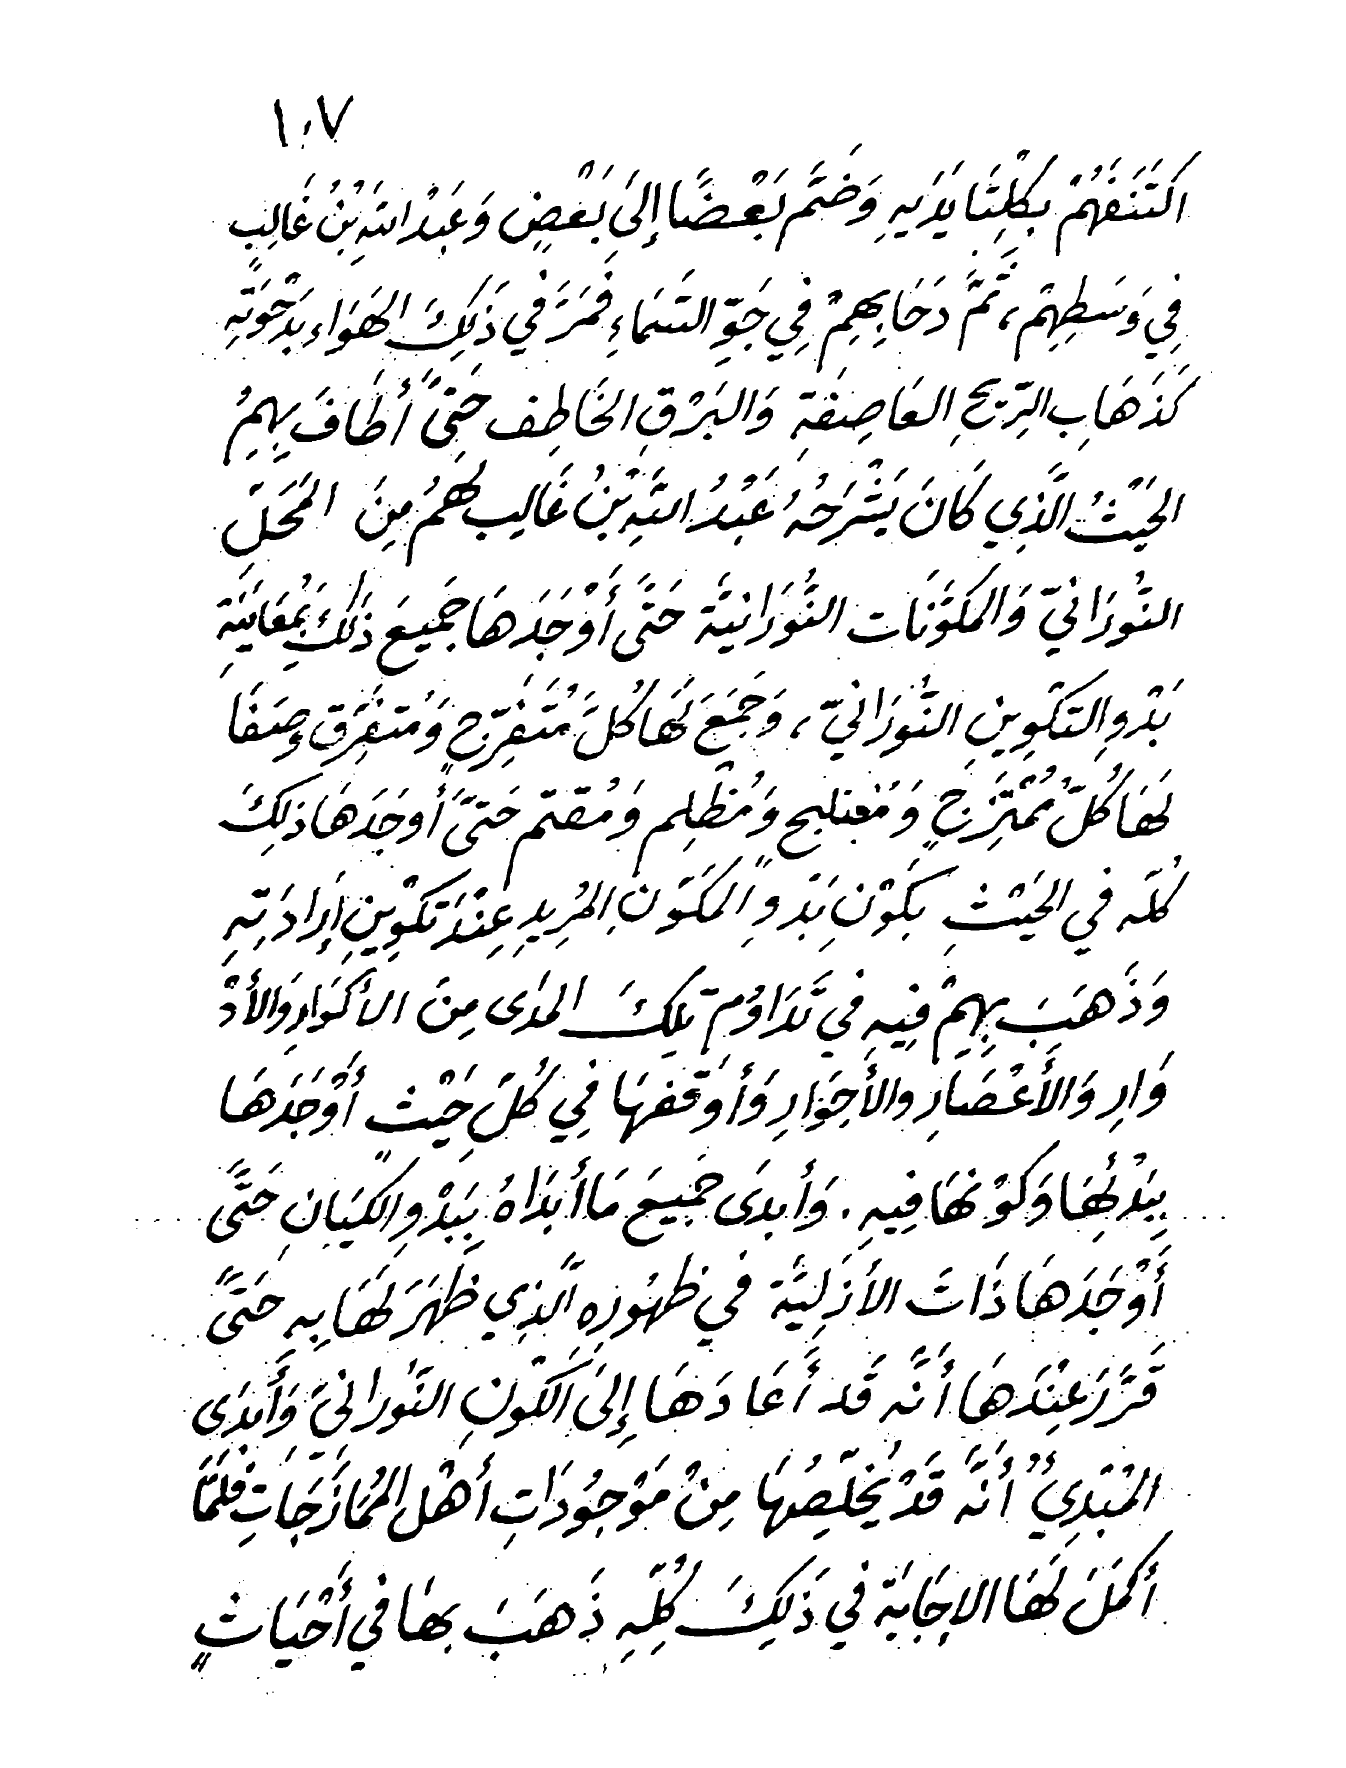 ١٠٧
اكتَنَفَهُمْ بِكِلْتَا يَدَيهِ وَضَمَّ بَعْضًا إِلىَ بَعْضٍ وَعَبْدُ اللهِ بْنُ غَالِبٍ
فِي وَسَطِهِمْ، ثُمَّ دَحَا بِهِمْ فِي جَوِّ السَمَاءِ فَمَرَ فِي ذَلِكَ الهَوَاءِ بِدَحْوَتِهِ
كَذَهَابِ الرِّيحِ العَاصِفَةِ وَالبَرْقِ الخَاطِف حَتىَّ أَطَافَ بِهِمُ
الحَيْثُ الَّذِي كَانَ يَشْرَحُهُ عَبْدُ اللَّهِ بْنُ غَالِب لَهُمُ مِنَ المَحَلِّ
النُّورَانيّ وَالمكَوَّنَات النُّورَانيَّة حَتَّى أَوْجَدَهَا جَمِيعَ ذَلِكَ بِمُعَايَنَةِ
بَدْوِ التَكوِينِ النُّورَانيّ، وَجَمَعَ لَهَا كُلَ مُتَفَرِّجٍ وَمُتَفَرِّق وصَفَا
لَهَا كُلّ مُمْتَزِجٍ وَمُعتلِج وَمُظْلِم وَمُقتم حَتىَّ أَوجَدَهَا ذلِكَ
كُلّه في الحَيْثِ بِكَوْنِ بَدْوِ المكَوّنِ المُرِيدِ عِنْدَ تَكوْينِ إِرَادَتِهِ
وَذَهَبَ بِهِمْ فِيهِ في تَدَاوُمِ تِلكَ المدَى مِنَ الأَكوَارِ وَالأَدْ
وَارِ وَالأَعْصَارِ والأَجوَارِ وَأَوقَفَهَا فِي كُلِّ حَيْثٍ أَوْجَدَهَا
بِبَدْئِهَا وَكَوْنهَا فِيهِ. وَأَبدَى جَمِيعَ مَا أَبدَاهُ بِبَدْوِ الكيَانِ حَتَّى
أَوْجَدَهَا ذَاتَ الأَزَلِيَّة في ظهُورِهِ الَّذِي ظهَرَ لَهَا بِهِ حَتىَّ
قَرَّرَ عِنْدَهَا أَنَّه قَد أَعَادَهَا إِلىَ الكَوْنِ النّورَانيّ وَأَبدَى
المُبْدِيُ أَنَّه قَدْ يُخَلِّصُهَا مِنْ مَوْجُودَاتِ أَهْل المُمَازَجَاتِ فَلَمَّا
أكمَلَ لَهَا الاجَابَة في ذَلِكَ كُلِّهِ ذَهَبَ بِهَا في أَحْيَاثٍ